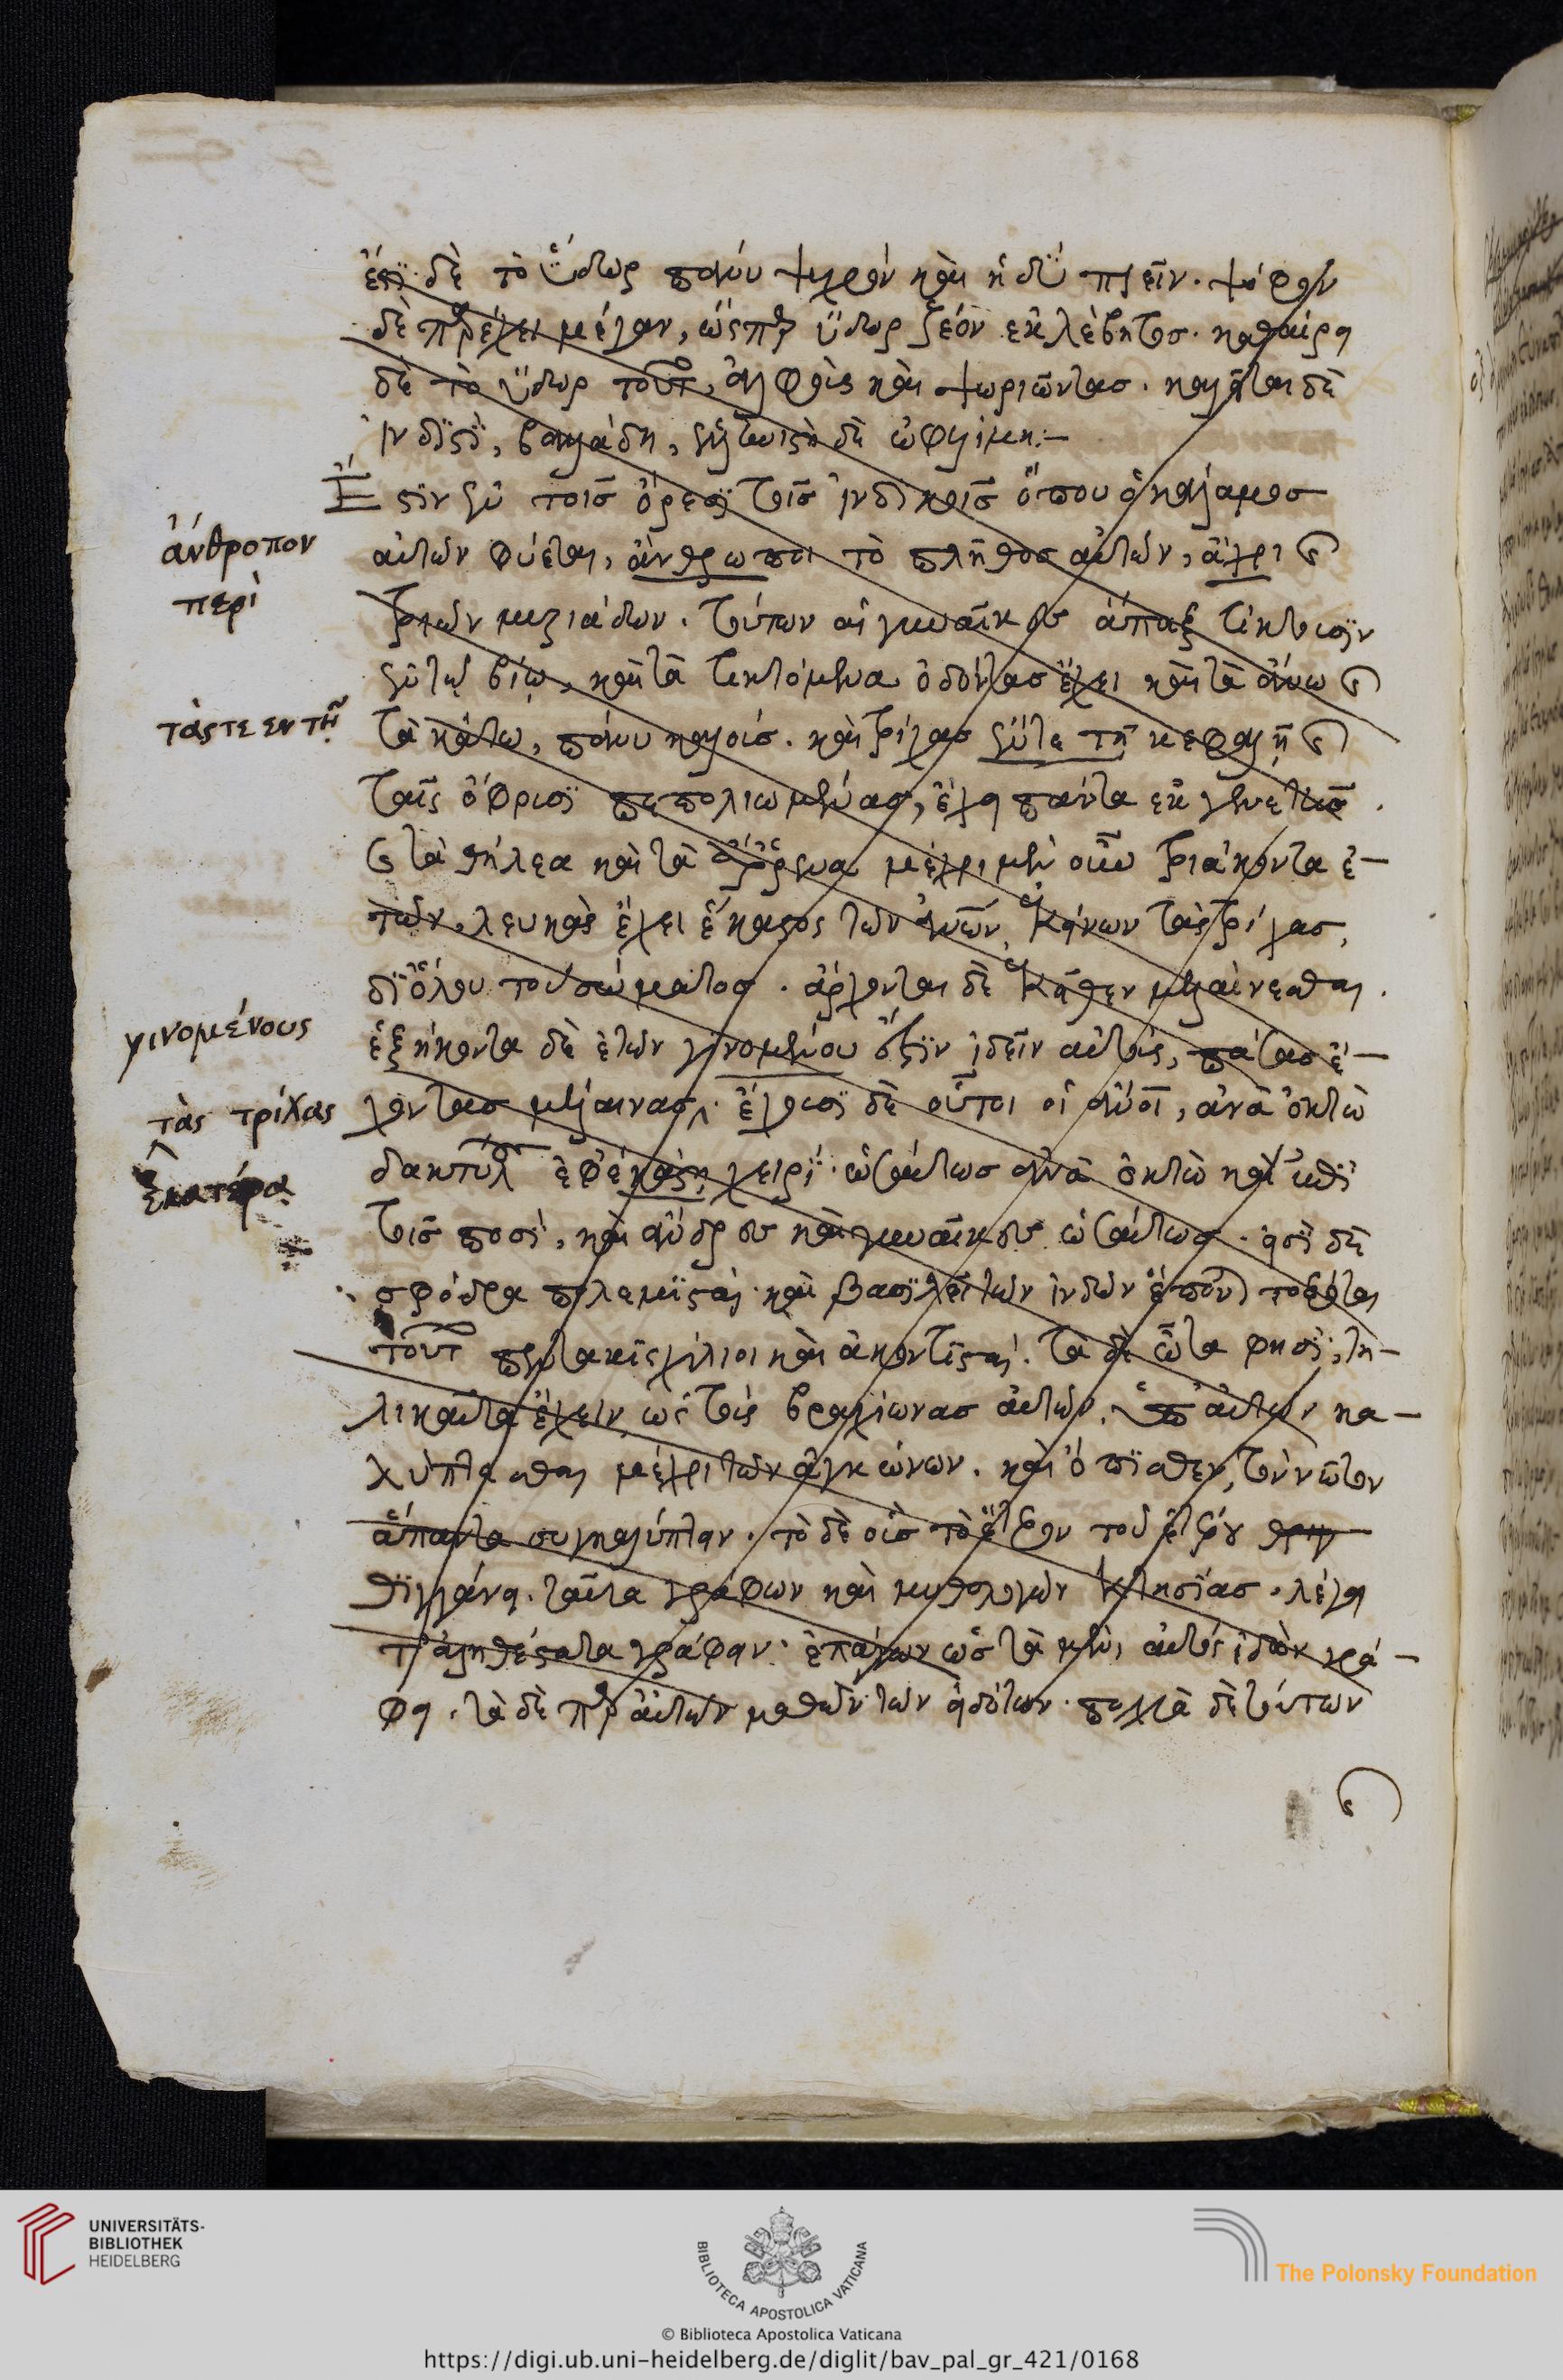 ἔστι δὲ τὸ ὕδωρ πάνυ ψυχρὸν καὶ ἡδὺ πιεῖν. ψόφον
δὲ παρέχει μέγαν, ὥσπερ ὕδωρ ζέον ἐκ λέβητος. καθαίρει
δὲ τὸ ὕδωρ τοῦτο, ἀλφοὺς καὶ ψωριῶντας. καλεῖται δὲ
ἰνδιστὶ, βαλλάδη, ἑλληνιστὶ δὲ ὠφελίμη:-
Εἰσὶν ἐν τοῖς ὄρεσι τοῖς ἰνδικοῖς ὅπου ὁ κάλαμος
ἀνθροπον
αὐτῶν φύεται, ἄνθρωποι τὸ πλῆθος αὐτῶν, ἄχρι καὶ
περὶ
τριῶν μυριάδων. τούτων αἱ γυναῖκες ἅπαξ τίκτουσιν
ἐν τῷ βίῳ, καὶ τὰ τικτόμενα ὀδόντας ἔχει καὶ τὰ ἄνω καὶ
τάς τε εν τῇ
τὰ κάτω, πάνυ καλούς. καὶ τρίχας ἔν τε τῇ κεφαλῇ καὶ
ταῖς ὀφρύσι πεπολιωμένας, ἔχει πάντα ἐκ γενετῆς.
καὶ τὰ θήλεα καὶ τὰ ἄρρενα μέχρι μὲν οὖν τριάκοντα ἐ-
τῶν. λευκὰς ἔχει ἕκαστος τῶν ἀνῶν ἐκείνων τὰς τρίχας,
δι' ὅλου τοῦ σώματος. ἄρχονται δὲ ἐκεῖθεν μελαίνεσθαι.
γινομένους
ἑξήκοντα δὲ ἐτῶν γινομένου ἔστιν ἰδεῖν αὐτοὺς, πάσας ἔ-
τὰς τρίχας
χοντας μελαίνας. ἔχουσι δὲ οὗτοι οἱ ἀνοι, ἀνὰ ὀκτὼ
ἑκατέρᾳ
δακτύλους ἐφ' ἑκάστῃ χειρί. ὡσαύτως ἀνὰ ὀκτὼ καὶ ἐπὶ
τοῖς ποσί, καὶ ἄνδρες καὶ γυναῖκες ὡσαύτως. εἰσὶ δὲ
σφόδρα πολεμισταί. καὶ βασιλεῖ τῶν ἰνδῶν ἕπονται τοξόται
τούτων πεντακισχίλιοι καὶ ἀκοντισταί. τὰ δὲ ὦτα φησί, τη-
λικαῦτα ἔχειν, ὡς τοὺς βραχίωνας αὐτῶν, ὑπ' αὐτῶν κα-
λύπτεσθαι μέχρι τῶν ἀγκώνων. καὶ ὄπισθεν, τὸν νῶτον
ἅπαντα συγκαλύπτειν. τὸ δὲ οὖς τὸ ἕτερον τοῦ ἑτέρου
θιγγάνει. ταῦτα γράφων καὶ μυθολογῶν κτησίας. λέγει
τἀληθέστατα γράφειν. ἐπάγων ὡς τὰ μὲν, αὐτὸς ἰδὼν γρά-
φει. τὰ δὲ παρ' αὐτῶν μαθὼν τῶν εἰδότων. πολλὰ δὲ τούτων
καὶ
UNIVERSITÄTS-
BIBLIOTHEK
HEIDELBERG
BIBLIOTECA APOSTOLICA VATICANA
The Polonsky Foundation
© Biblioteca Apostolica Vaticana
https://digi.ub.uni-heidelberg.de/diglit/bav_pal_gr_421/0168